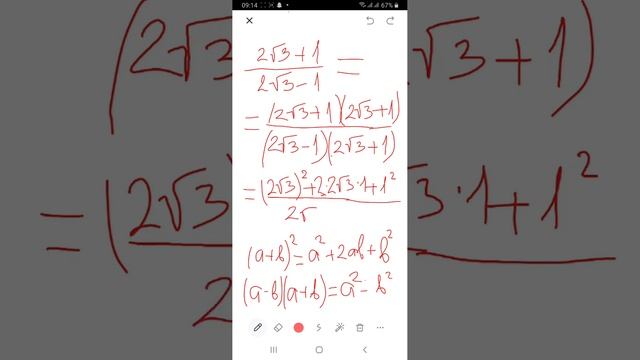 09:14 67%
2√3+1
2√3-1 =
= (2√3+1)(2√3+1)
(2√3-1)(2√3+1)
= (2√3)²+2·2√3·1+1²
2√
(a+b)²=a²+2ab+b²
(a-b)(a+b)=a²-b²